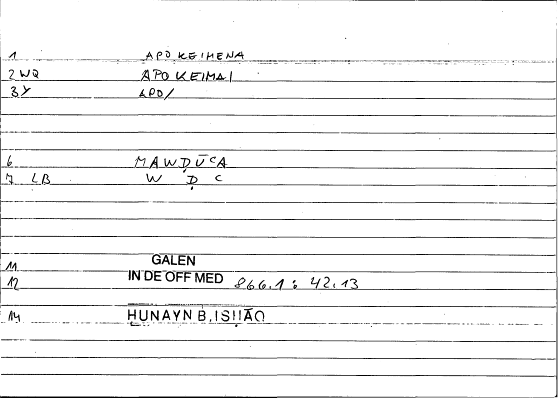 1 APOKEIMENA
2 WQ APOKEIMAI
3 Y APO/
6 MAWḌŪCA
7 LB W Ḍ C
11 GALEN
12 IN DE OFF MED 866.1 : 42.13
14 ḤUNAYN B. ISḤĀQ